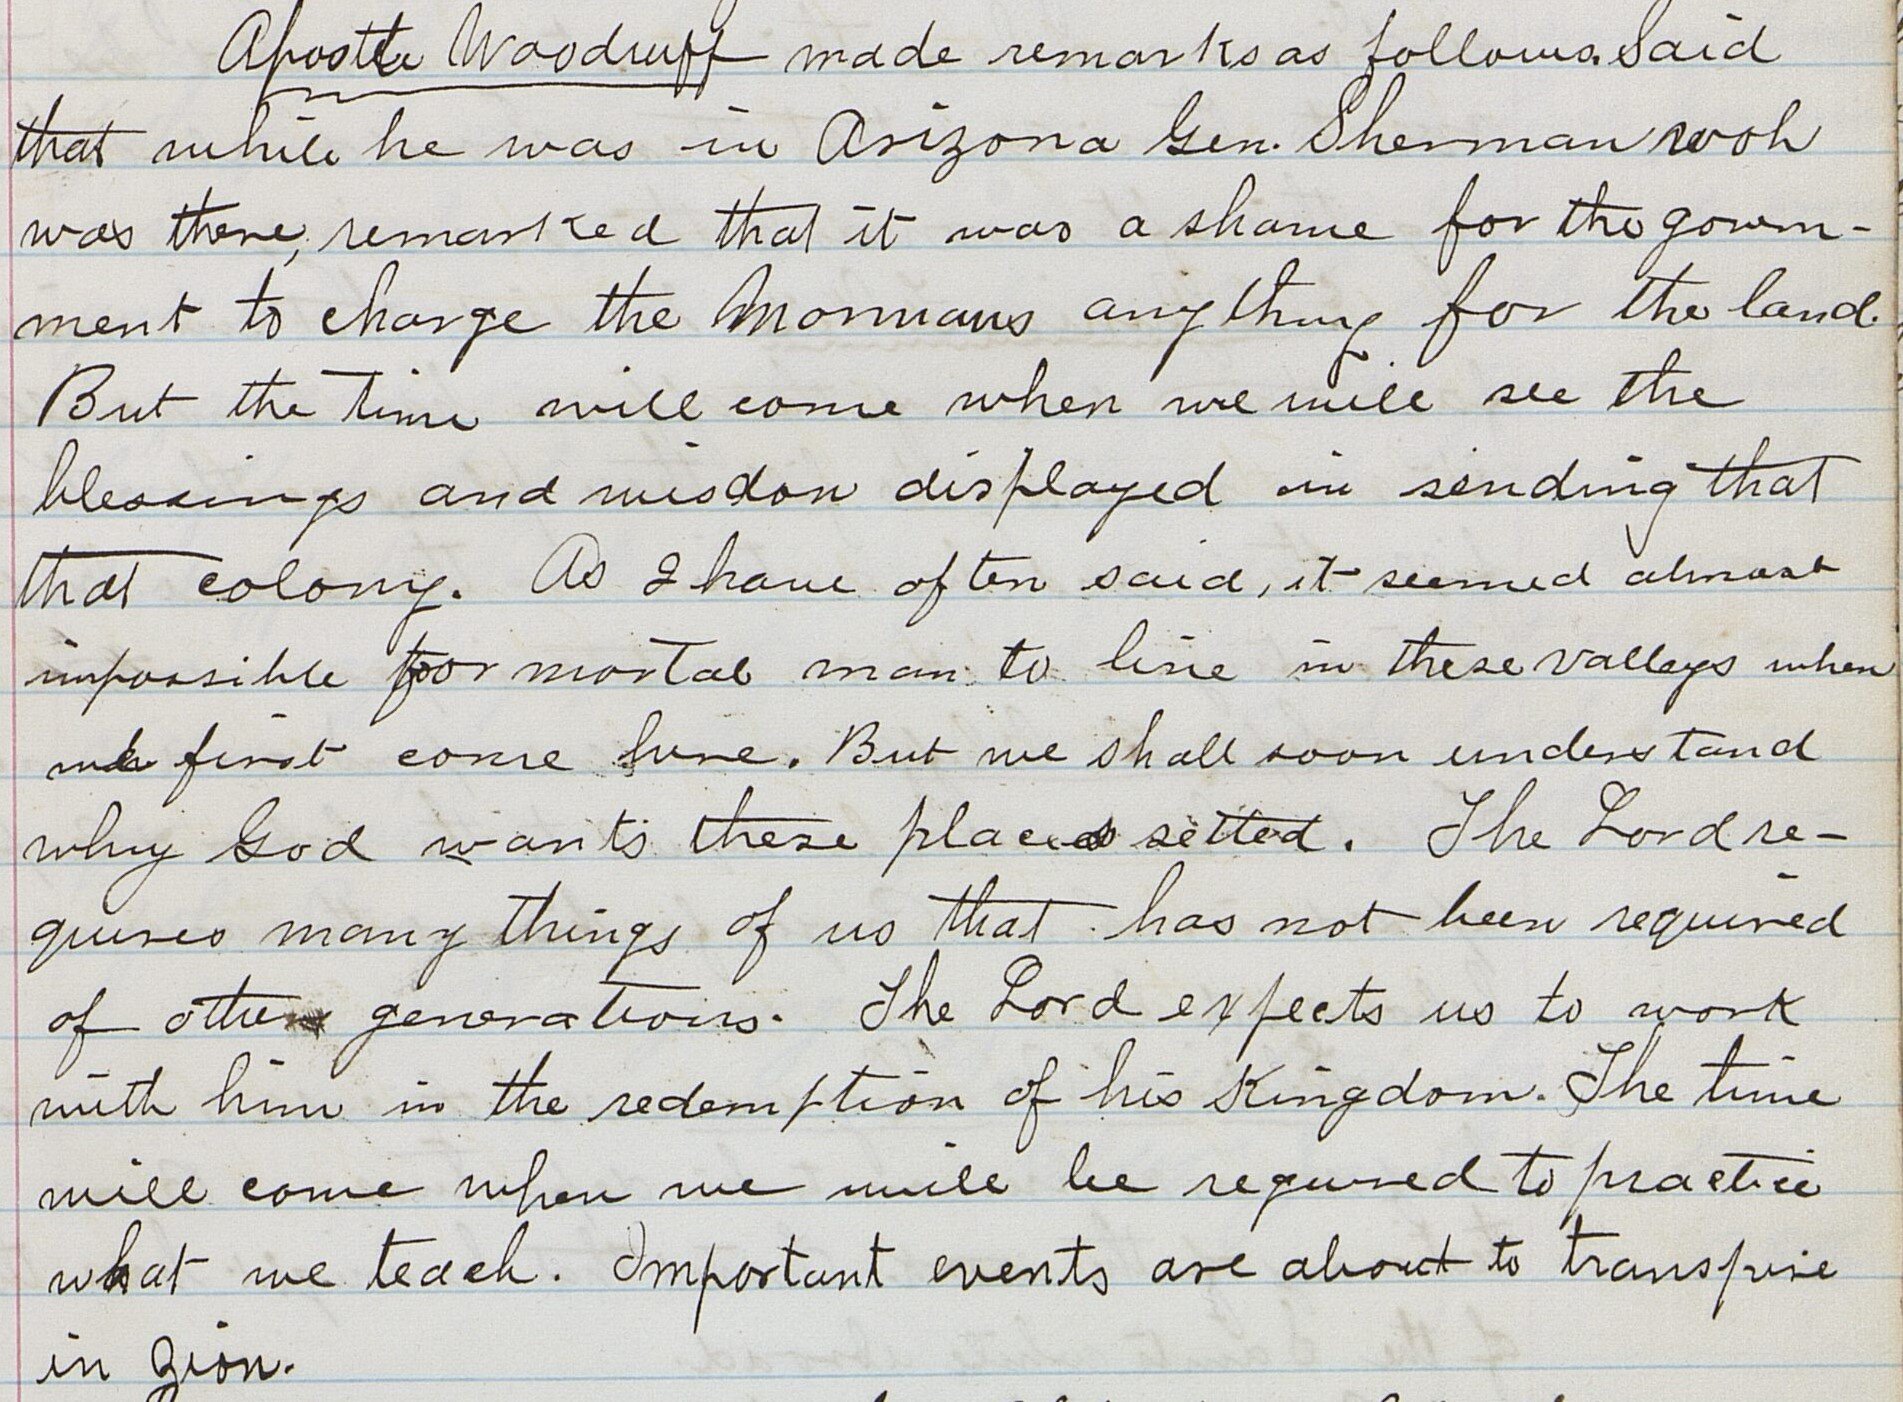 Apostle Woodruff made remarks as follows. Said
that while he was in Arizona Gen. Sherman woh
was there, remarked that it was a shame for the govern-
ment to charge the Mormans anything for the land.
But the time will come when we will see the
blessings and wisdon displayed in sending that
that colony. As I have often said, it seemed almost
impossible for mortal man to live in these valleys when
we first come here. But we shall soon understand
why God wants these places setted. The Lord re-
quires many things of us that has not been required
of other generations. The Lord expects us to work
with him in the redemption of his Kingdom. The time
will come when we will be required to practice
what we teach. Important events are about to transpire
in Zion.